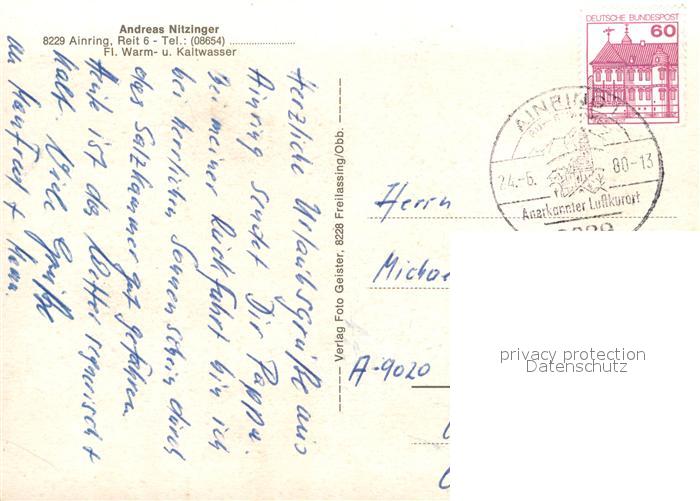 Andreas Nitzinger
8229 Ainring, Reit 6 - Tel.: (08654) ....................
Fl. Warm- u. Kaltwasser
Herzliche Urlaubsgrüße aus
Ainring sendet Dir Pappa.
Bei meiner Rückfahrt bin ich
bei herrlichen Sonnenschein durch
das Salzkammergut gefahren.
Heute ist das Wetter regnerisch +
kalt. Viele Grüße
an Manfred +
Verlag Foto Geister, 8228 Freilassing/Obb.
DEUTSCHE BUNDESPOST
60
AINRING
24.-6.
80-13
Anerkannter Luftkurort
8229
Herrn
Michae
A-9020
privacy protection
Datenschutz